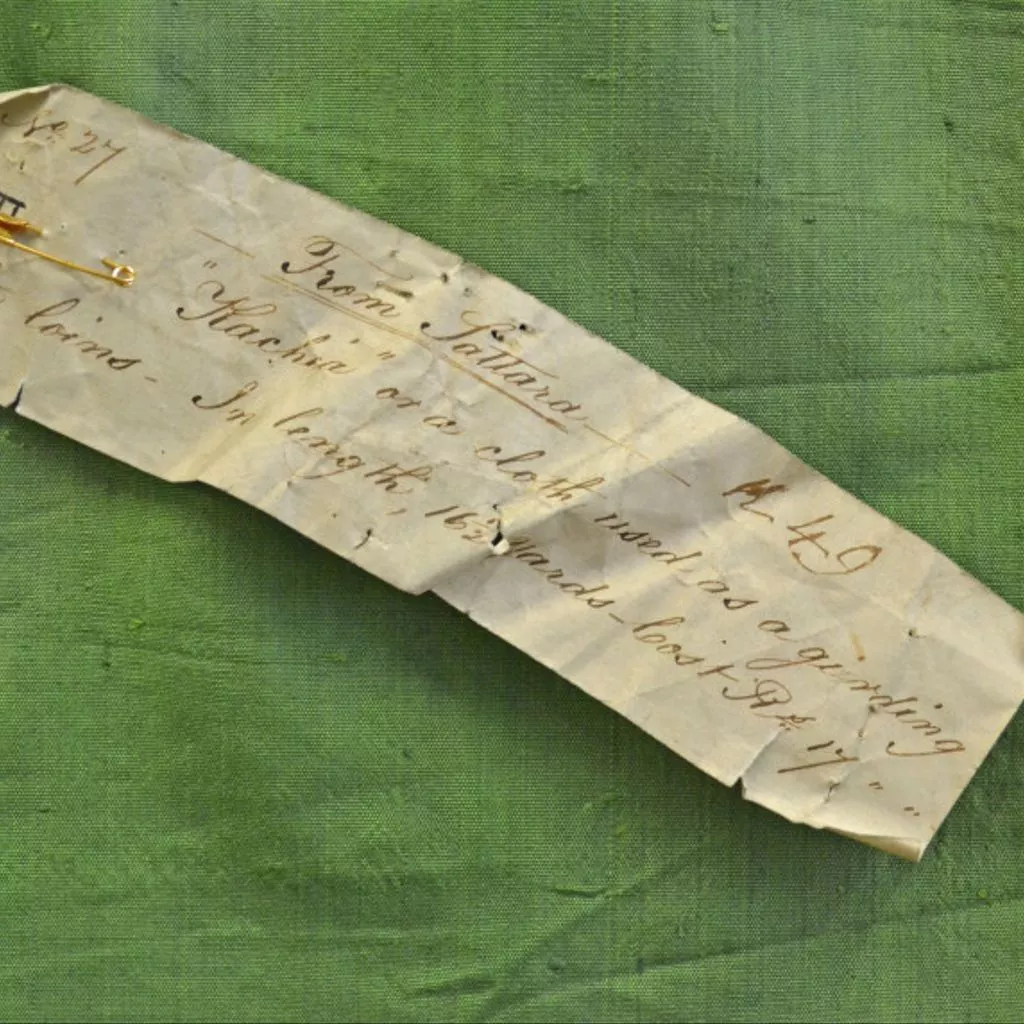 No. 27
From Sattara
M 49
"Kachha" or a cloth used as a girding
loins - In length, 16½ yards - Cost Rs. 17 " "